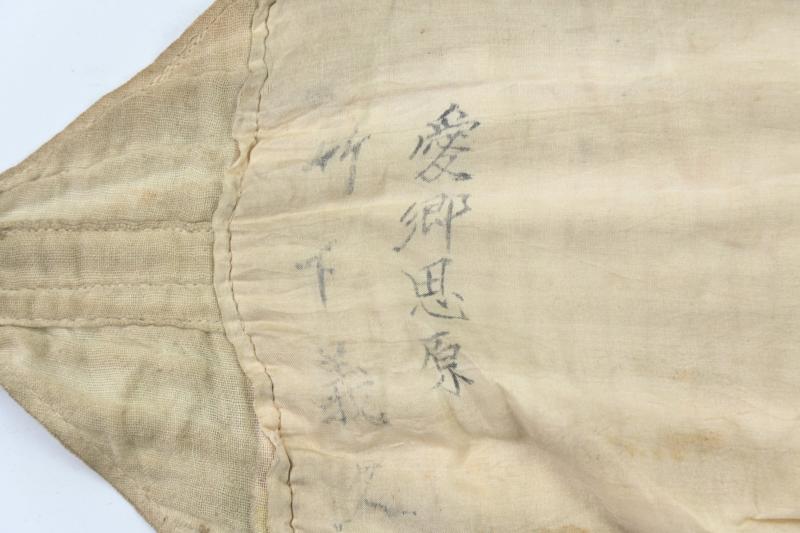 愛郷思原
竹下義